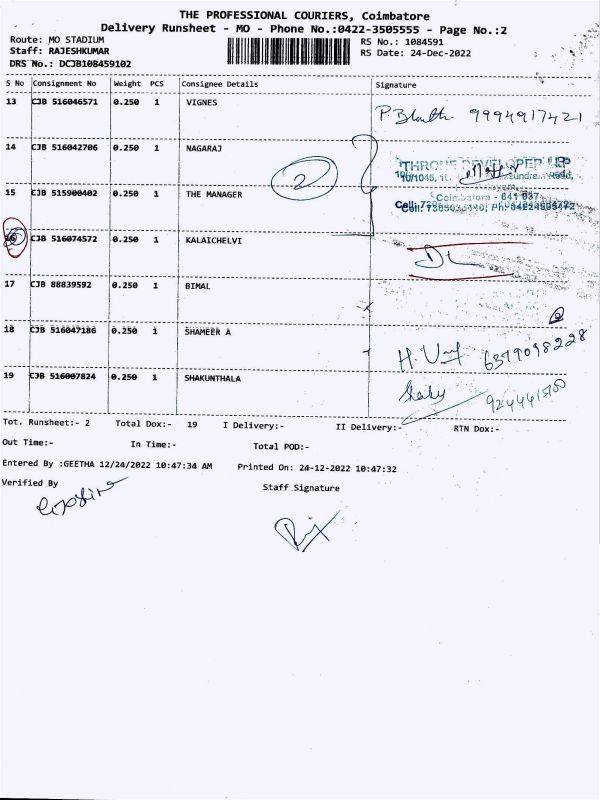 THE PROFESSIONAL COURIERS, Coimbatore
Delivery Runsheet - MO - Phone No.:0422-3505555 - Page No.:2
Route: MO STADIUM
RS No.: 1084591
Staff: RAJESHKUMAR
RS Date: 24-Dec-2022
DRS No.: DCJB108459102
S No Consignment No Weight PCS Consignee Details Signature
13 CJB 516046571 0.250 1 VIGNES 9994917421
14 CJB 516042706 0.250 1 NAGARAJ
2
THRONE DEVELOPER LLP
15 CJB 515900402 0.250 1 THE MANAGER
Coimbatore - 641 037
16 CJB 516074572 0.250 1 KALAICHELVI
17 CJB 88839592 0.250 1 BIMAL
18 CJB 516047186 0.250 1 SHAMEER A 6379098228
19 CJB 516007824 0.250 1 SHAKUNTHALA
Tot. Runsheet:- 2 Total Dox:- 19 I Delivery:- II Delivery:- RTN Dox:-
Out Time:- In Time:- Total POD:-
Entered By :GEETHA 12/24/2022 10:47:34 AM Printed On: 24-12-2022 10:47:32
Verified By Staff Signature